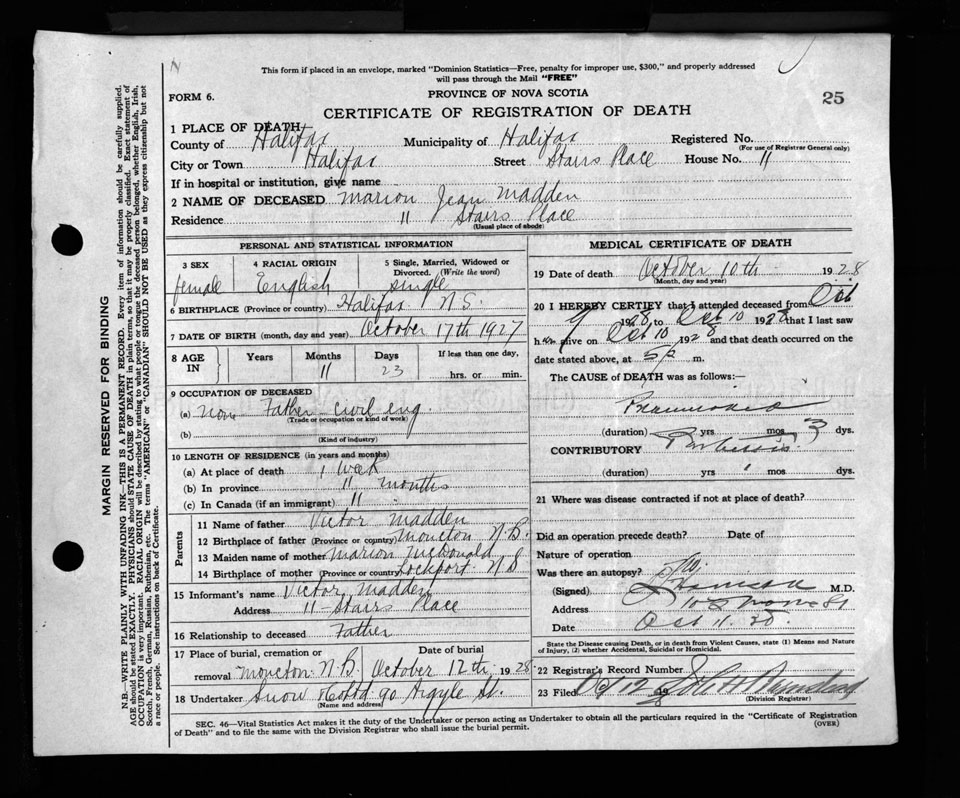 This form if placed in an envelope, marked "Dominion Statistics—Free, penalty for improper use, $300," and properly addressed
will pass through the Mail "FREE"
PROVINCE OF NOVA SCOTIA
FORM 6.
25
CERTIFICATE OF REGISTRATION OF DEATH
1 PLACE OF DEATH
County of Halifax Municipality of Halifax Registered No.
(For use of Registrar General only)
City or Town Halifax Street Stairs Place House No. 11
If in hospital or institution, give name
2 NAME OF DECEASED Marion Jean Madden
Residence 11 Stairs Place
(Usual place of abode)
PERSONAL AND STATISTICAL INFORMATION
3 SEX 4 RACIAL ORIGIN 5 Single, Married, Widowed or Divorced. (Write the word)
female English single
6 BIRTHPLACE (Province or country) Halifax N.S.
7 DATE OF BIRTH (month, day and year) October 17th 1927
8 AGE IN Years Months Days If less than one day,
11 23 hrs. or min.
9 OCCUPATION OF DECEASED
(a) None Father civil eng.
(Trade or occupation or kind of work)
(b)
(Kind of industry)
10 LENGTH OF RESIDENCE (in years and months)
(a) At place of death 1 week
(b) In province 11 months
(c) In Canada (if an immigrant) 11
Parents
11 Name of father Victor Madden
12 Birthplace of father (Province or country) Moncton N.B.
13 Maiden name of mother Marion McDonald
14 Birthplace of mother (Province or country) Lockport N S
15 Informant's name Victor Madden
Address 11 Stairs Place
16 Relationship to deceased Father
17 Place of burial, cremation or removal Date of burial
Moncton N.B. October 12th 1928
18 Undertaker Snow & Co Ltd 90 Argyle St.
(Name and address)
MEDICAL CERTIFICATE OF DEATH
19 Date of death October 10th 1928
(Month, day and year)
20 I HEREBY CERTIFY that I attended deceased from Oct
9 1928 to Oct 10 1928 that I last saw
h alive on Oct 10 1928 and that death occurred on the
date stated above, at 5 P. m.
The CAUSE of DEATH was as follows:—
(duration) yrs mos 3 dys.
CONTRIBUTORY
(duration) yrs mos dys.
21 Where was disease contracted if not at place of death?
Did an operation precede death? Date of
Nature of operation
Was there an autopsy? No
(Signed) M.D.
Address
Date Oct 11
State the Disease causing Death, or in death from Violent Causes, state (1) Means and Nature
of Injury, (2) whether Accidental, Suicidal or Homicidal.
22 Registrar's Record Number
23 Filed 19
(Division Registrar)
SEC. 46—Vital Statistics Act makes it the duty of the Undertaker or person acting as Undertaker to obtain all the particulars required in the "Certificate of Registration
of Death" and to file the same with the Division Registrar who shall issue the burial permit.
(OVER)
MARGIN RESERVED FOR BINDING
N.B.—WRITE PLAINLY WITH UNFADING INK—THIS IS A PERMANENT RECORD. Every item of information should be carefully supplied.
AGE should be stated EXACTLY. PHYSICIANS should STATE CAUSE OF DEATH in plain terms, so that it may be properly classified. Exact statement of
OCCUPATION is very important. RACIAL ORIGIN will be described by stating to what people or tongue the deceased person belonged, whether English, Irish,
Scotch, French, German, Russian, Ruthenian, etc. The terms "AMERICAN" or "CANADIAN" SHOULD NOT BE USED as they express citizenship but not
a race or people. See instructions on back of Certificate.